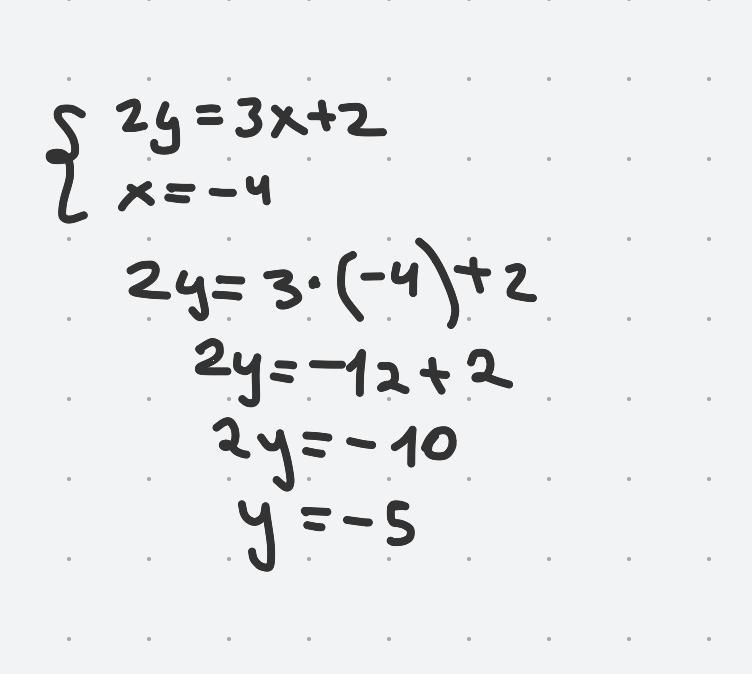 { 2y=3x+2
x=-4
2y=3·(-4)+2
2y=-12+2
2y=-10
y=-5